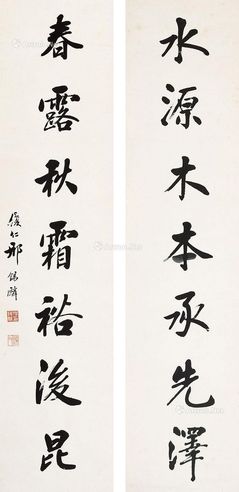 水源木本承先澤
春露秋霜裕後昆